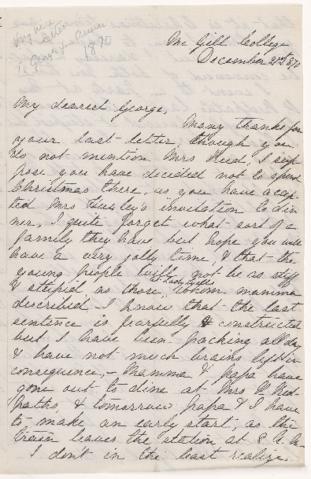 1890
Mc Gill College
December 21st 1870
My dearest George,
Many thanks for
your last letter, though you
do not mention Mrs I sup
pose you have decided not to spend
Christmas there, as you have accep
ted Mrs invitation to din
ner, I quite forget what sort of a
family they have but hope you will
have a very jolly time, & that the
young people will not be as stiff
& stupid as those, at Lady whom mamma
described. I know that the last
sentence is fearfully constructed
but I have been packing all day
& have not much brains left in
consequence, – Mamma & papa have
gone out to dine at Mrs Red
paths, & tomorrow papa & I have
to make an early start; as the
train leaves the station at
I don't in the least realize